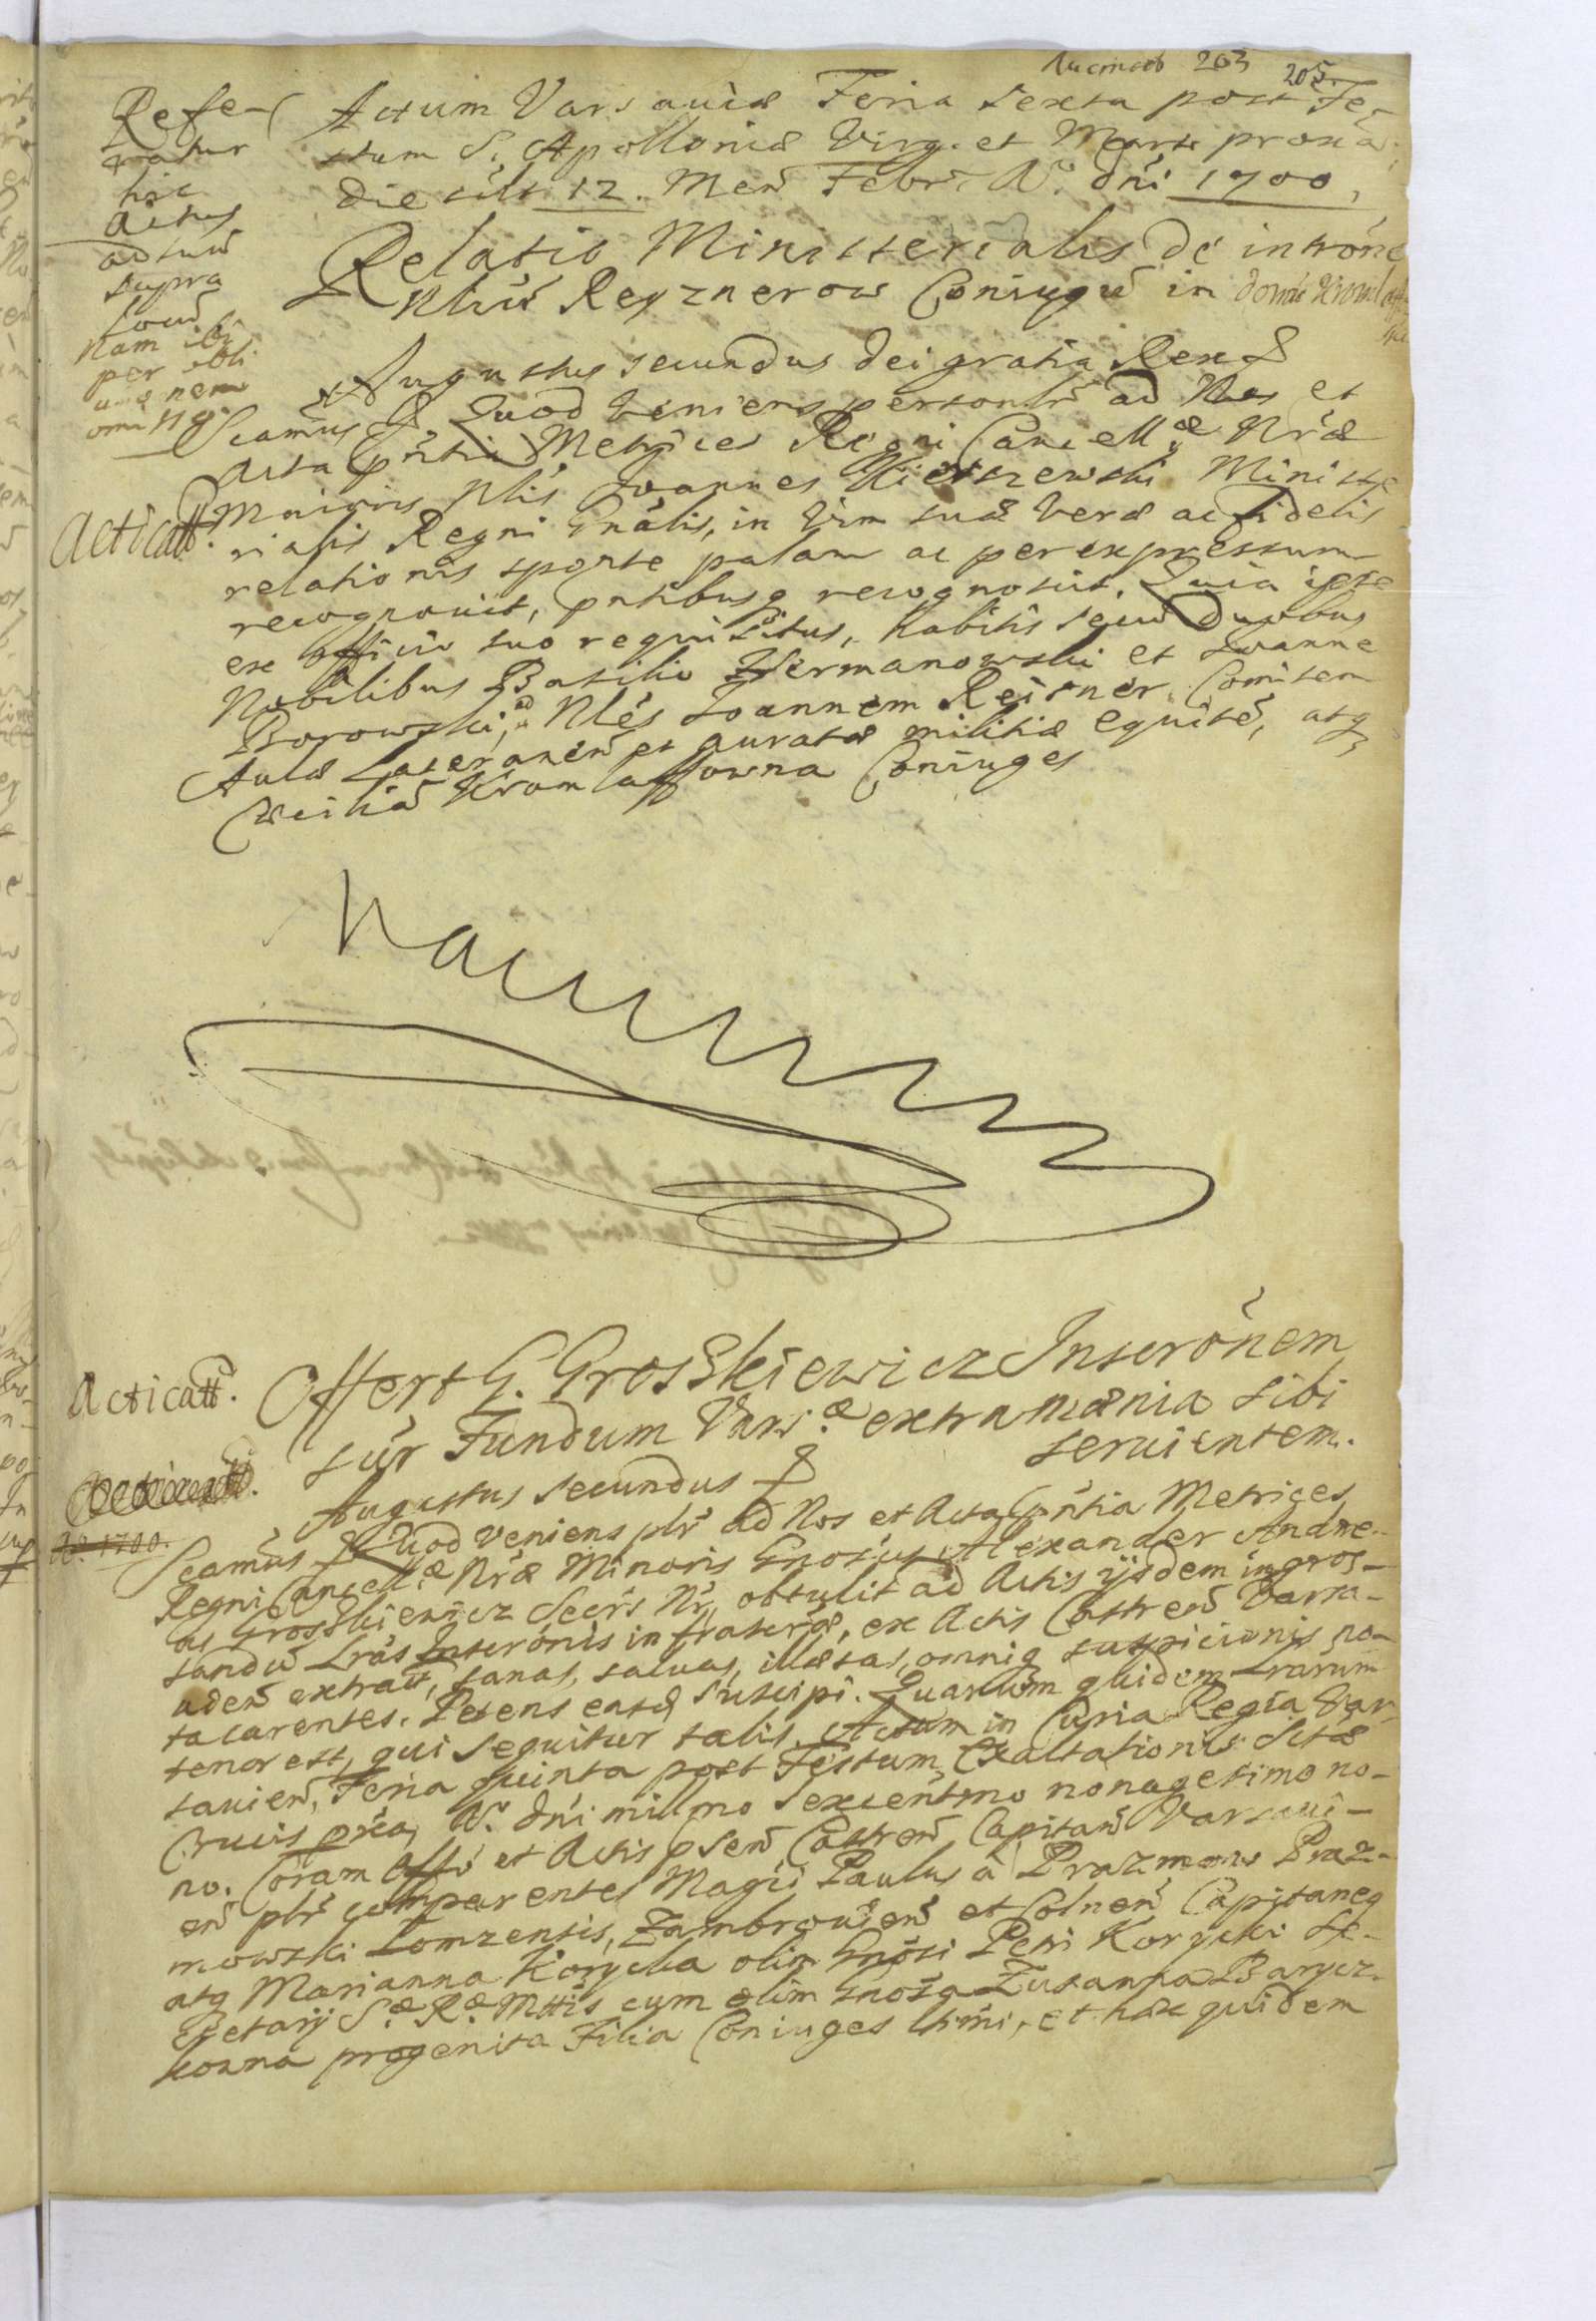 Листовъ 203 205.
Refe-
ratur
hic
Actus
ad suũ
supra
locũ
Nam ibi
per obli
uionem
omi
Actum Varsauiæ Feria Sexta post Fe-
stum S. Apollonicæ Virg. et Mart. proxã
die scilt 12. Men̄ Febr. A.° dn̄i 1700,
Relatio Ministerialis de introne
Nliũ Reyznerow Coniugũ in domũ
Augustus secundus dei gratia Rex &
Scamus & Quod veniens personlr̃ ad Nos et
Acta p̃ntia Metrices Regni Cancell.æ Nræ
Acticatt.
Minoris Nlis Joannes Ministe
rialis Regni Gnãlis, in Vim suæ Veræ ac fidelis
relationis sponte palam ac per expressum
recognouit, p̃ntibusq recognoscit. Quia ipse
ex officio suo requisitus, habitis secũ duobus
Nobilibus Basilio Hermanowski et Joanne
Borowski, ad Nles Joannem Reisner Comitem
Aulæ Lateranen̄ et auratæ militiæ equitẽ, atq
Cæciliã Kromlaffowna Coniuges
Vacuum
Acticatt.
Offert G. Grosskiewicz Inscrõnem
sũr Fundum Vars.æ extra mænia sibi
seruientem.
A.° 1700.
Augustus Secundus &
Scamus & Quod veniens plr̃ ad Nos et Acta p̃ntia Metrices
Regni Cancell.æ Nræ Minoris Gnosus Alexander Andre-
as Grosskiewicz Secrs Nr, obtulit ad Actis ijsdem ingros-
sandũ Lrãs Inscrõnis infrascræ, ex Actis Castren̄ Varsa-
uien̄ extract, sanas, saluas, illæsas, omniq suspicionis no-
ta carentes. Petens easd̃ suscipi. Quarum quidem Lrarum
tenor est, qui sequitur talis. Actum in Curia Regia Var-
sauien̄, Feria quinta post Festum Exaltationis Sctæ
Crucis pxa, A.° dn̄i millmo Sexcentmo nonagesimo no-
no. Coram Offo et Actis p̃sen̄ Castren̄ Capitan̄ Varsaui-
en̄ plr̃ comparentes Magcũ Paulus à Prazmow Praz-
mowski Lomzensis, Zambrouien̄ et Colnen̄ Capitaneq
atq Marianna Korycka olim Gnosi Petri Korycki Se-
cretarij S.æ R.æ Mttis cum olim Gnosa Zusanna Barycz-
kowna progenita Filia Coniuges ltimi, et hæc quidem